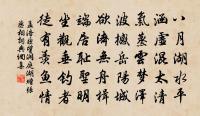 八月湖水平
涵虛混太清
氣蒸雲夢澤
波撼岳陽城
欲濟無舟楫
端居恥聖明
坐觀垂釣者
徒有羨魚情
孟浩然望洞庭湖贈張
丞相詞典網集